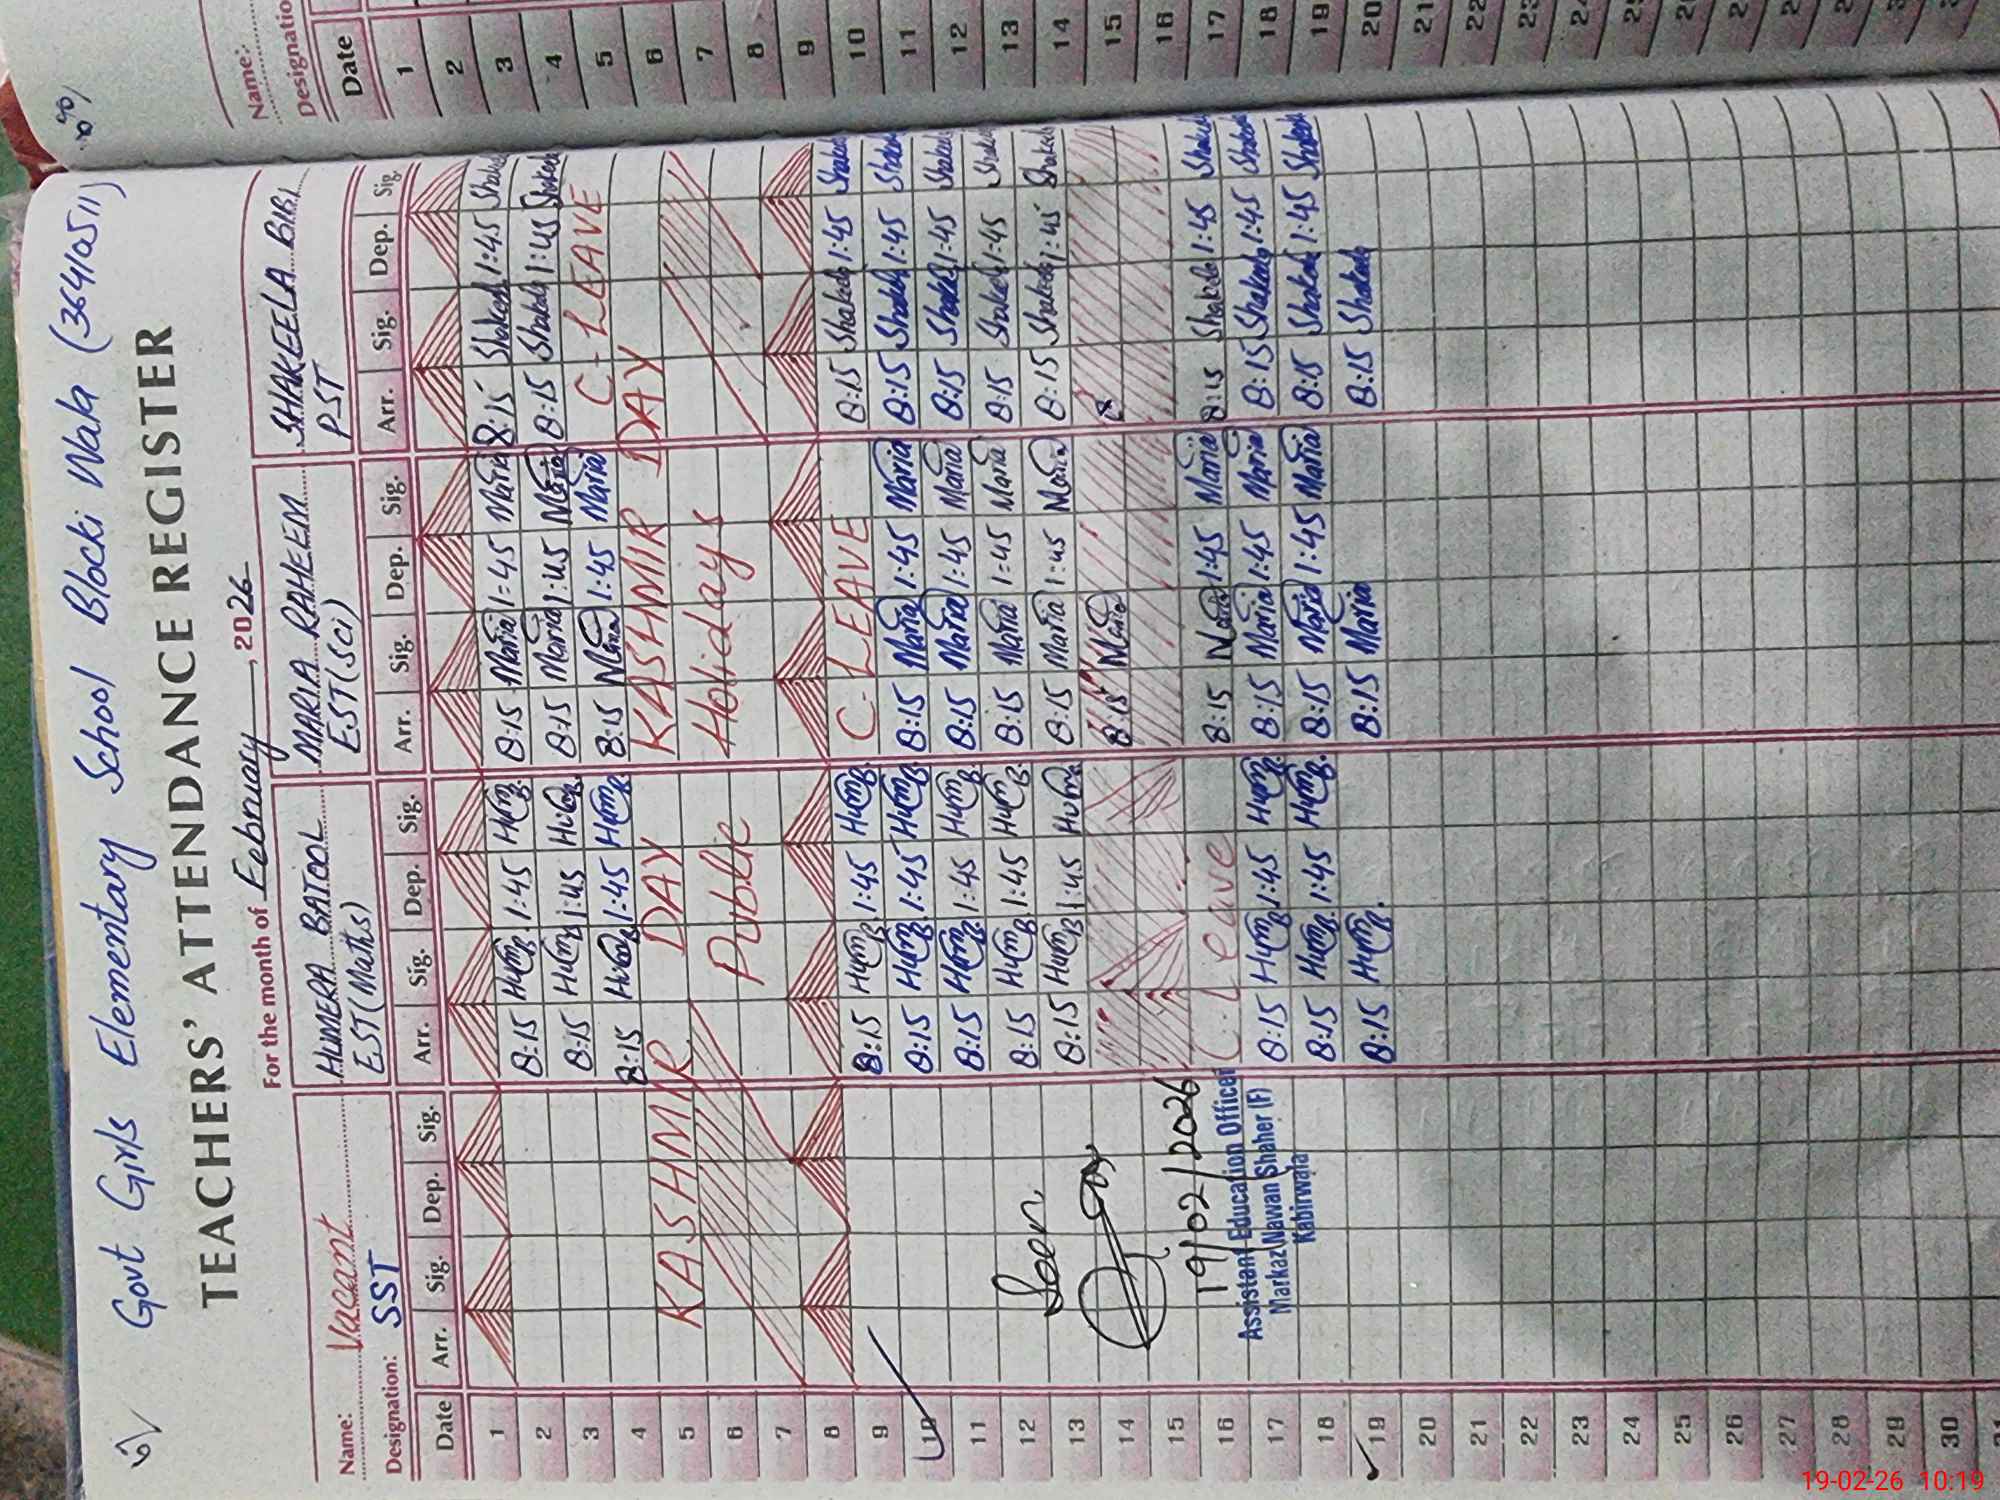 Govt Girls Elementary School Blocki Wala (36410511)
TEACHERS' ATTENDANCE REGISTER
For the month of February, 2026
Name: Vacant HUMERA BATOOL MARIA RAHEEM SHAKEELA BIBI
Designation: SST EST(Maths) EST(Sci) PST
Date Arr. Sig. Dep. Sig. Arr. Sig. Dep. Sig. Arr. Sig. Dep. Sig. Arr. Sig. Dep. Sig.
1
2 8:15 Huma 1:45 Huma 8:15 Maria 1:45 Maria 8:15 Shakeela 1:45 Shakeela
3 8:15 Huma 1:45 Huma 8:15 Maria 1:45 Maria 8:15 Shakeela 1:45 Shakeela
4 8:15 Huma 1:45 Huma 8:15 Maria 1:45 Maria C-LEAVE
5 KASHMIR DAY KASHMIR DAY
6 Public Holidays
7
8
9 8:15 Huma 1:45 Huma C-LEAVE 8:15 Shakeela 1:45 Shakeela
10 8:15 Huma 1:45 Huma 8:15 Maria 1:45 Maria 8:15 Shakeela 1:45 Shakeela
11 8:15 Huma 1:45 Huma 8:15 Maria 1:45 Maria 8:15 Shakeela 1:45 Shakeela
12 8:15 Huma 1:45 Huma 8:15 Maria 1:45 Maria 8:15 Shakeela 1:45 Shakeela
13 Seen 8:15 Huma 1:45 Huma 8:15 Maria 1:45 Maria 8:15 Shakeela 1:45 Shakeela
14 8:15 Maria 8
15
16 19/02/2026 C-Leave 8:15 Maria 1:45 Maria 8:15 Shakeela 1:45 Shakeela
Assistant Education Officer
Markaz Nawan Shaher (F)
Kabirwala
17 8:15 Huma 1:45 Huma 8:15 Maria 1:45 Maria 8:15 Shakeela 1:45 Shakeela
18 8:15 Huma 1:45 Huma 8:15 Maria 1:45 Maria 8:15 Shakeela 1:45 Shakeela
19 8:15 Huma 8:15 Maria 8:15 Shakeela
20
21
22
23
24
25
26
27
28
29
30
31
Name:
Designatio
Date
1
2
3
4
5
6
7
8
9
10
11
12
13
14
15
16
17
18
19
20
21
22
23
19-02-26 10:19